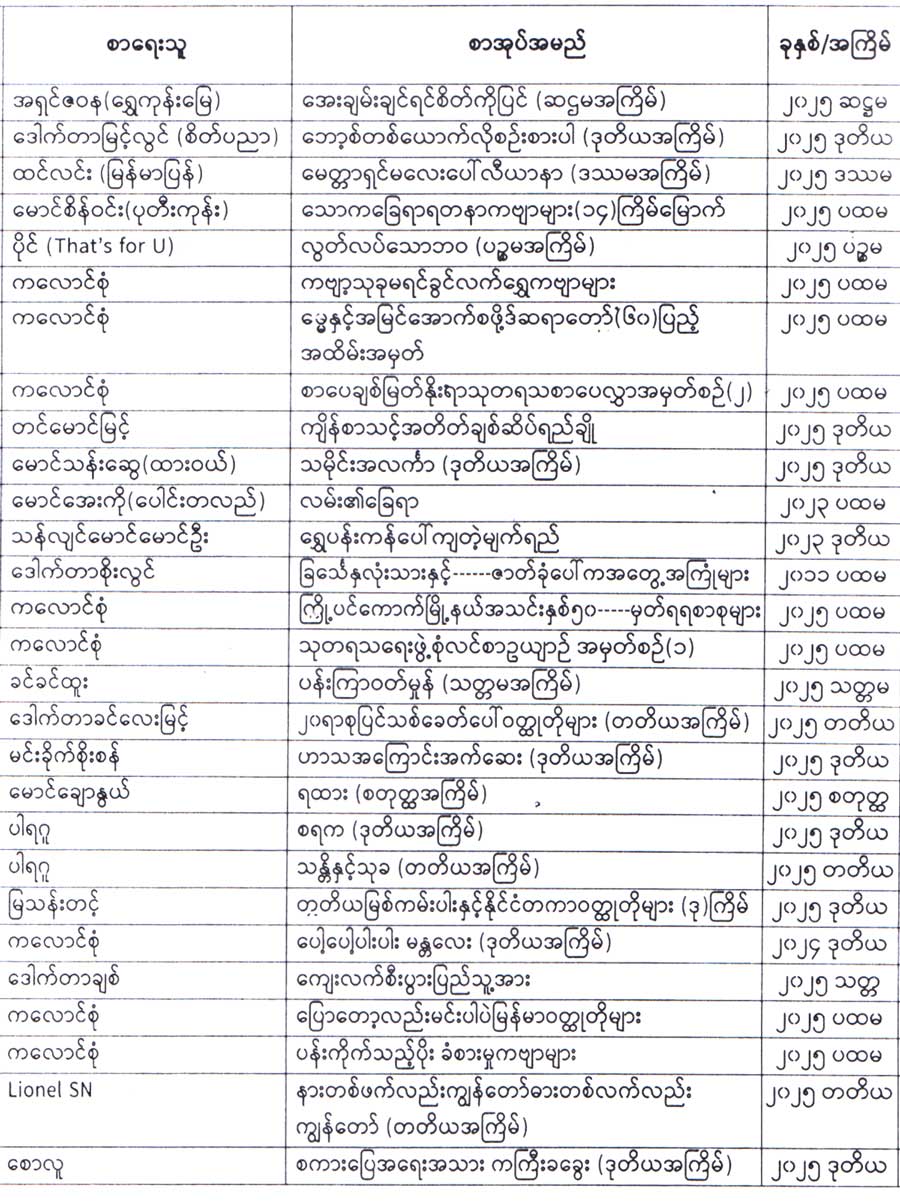 စာရေးသူ စာအုပ်အမည် ခုနှစ်/အကြိမ်
အရှင်ဇဝန(ရွှေကုန်းမြေ) အေးချမ်းချင်ရင်စိတ်ကိုပြင် (ဆဌမအကြိမ်) ၂၀၂၅ ဆဋ္ဌမ
ဒေါက်တာမြင့်လွင် (စိတ်ပညာ) ဘော့စ်တစ်ယောက်လိုစဉ်းစားပါ (ဒုတိယအကြိမ်) ၂၀၂၅ ဒုတိယ
ထင်လင်း (မြန်မာပြန်) မေတ္တာရှင်မလေးပေါ်လီယာနာ (ဒဿမအကြိမ်) ၂၀၂၅ ဒဿမ
မောင်စိန်ဝင်း(ပုတီးကုန်း) သောကခြေရာရတနာကဗျာများ(၁၄)ကြိမ်မြောက် ၂၀၂၅ ပထမ
ပိုင် (That's for U) လွတ်လပ်သောဘဝ (ပဉ္စမအကြိမ်) ၂၀၂၅ ပဉ္စမ
ကလောင်စုံ ကဗျာ့သုခုမရင်ခွင်လက်ရွှေကဗျာများ ၂၀၂၅ ပထမ
ကလောင်စုံ မွေ့နှင့်အမြင်အောက်စဖို့ဒ်ဆရာတော်(၆၀)ပြည့် ၂၀၂၅ ပထမ
အထိမ်းအမှတ်
ကလောင်စုံ စာပေချစ်မြတ်နိုးရာသုတရသစာပေလွှာအမှတ်စဉ်(၂) ၂၀၂၅ ပထမ
တင်မောင်မြင့် ကျိန်စာသင့်အတိတ်ချစ်ဆိပ်ရည်ချို ၂၀၂၅ ဒုတိယ
မောင်သန်းဆွေ(ထားဝယ်) သမိုင်းအလင်္ကာ (ဒုတိယအကြိမ်) ၂၀၂၅ ဒုတိယ
မောင်အေးကို(ပေါင်းတလည်) လမ်း၏ခြေရာ ၂၀၂၃ ပထမ
သန်လျင်မောင်မောင်ဦး ရွှေပန်းကန်ပေါ်ကျတဲ့မျက်ရည် ၂၀၂၃ ဒုတိယ
ဒေါက်တာစိုးလွင် ခြင်္သေ့နှလုံးသားနှင့်------ဇာတ်ခုံပေါ်ကအတွေ့အကြုံများ ၂၀၁၁ ပထမ
ကလောင်စုံ ကြို့ပင်ကောက်မြို့နယ်အသင်းနှစ်၅၀-----မှတ်ရရစာစုများ ၂၀၂၅ ပထမ
ကလောင်စုံ သုတရသရေးဖွဲ့စုံလင်စာဥယျာဉ် အမှတ်စဉ်(၁) ၂၀၂၅ ပထမ
ခင်ခင်ထူး ပန်းကြာဝတ်မှုန် (သတ္တမအကြိမ်) ၂၀၂၅ သတ္တမ
ဒေါက်တာခင်လေးမြင့် ၂၀ရာစုပြင်သစ်ခေတ်ပေါ်ဝတ္ထုတိုများ (တတိယအကြိမ်) ၂၀၂၅ တတိယ
မင်းခိုက်စိုးစန် ဟာသအကြောင်းအက်ဆေး (ဒုတိယအကြိမ်) ၂၀၂၅ ဒုတိယ
မောင်ချောနွယ် ရထား (စတုတ္ထအကြိမ်) ၂၀၂၅ စတုတ္ထ
ပါရဂူ စရက (ဒုတိယအကြိမ်) ၂၀၂၅ ဒုတိယ
ပါရဂူ သန္တိနှင့်သုခ (တတိယအကြိမ်) ၂၀၂၅ တတိယ
မြသန်းတင့် တတိယမြစ်ကမ်းပါးနှင့်နိုင်ငံတကာဝတ္ထုတိုများ (ဒု)ကြိမ် ၂၀၂၅ ဒုတိယ
ကလောင်စုံ ပေါ့ပေါ့ပါးပါး မန္တလေး (ဒုတိယအကြိမ်) ၂၀၂၄ ဒုတိယ
ဒေါက်တာချစ် ကျေးလက်စီးပွားပြည်သူ့အား ၂၀၂၅ သတ္တ
ကလောင်စုံ ပြောတော့လည်းမင်းပါပဲမြန်မာဝတ္ထုတိုများ ၂၀၂၅ ပထမ
ကလောင်စုံ ပန်းကိုက်သည့်ပိုး ခံစားမှုကဗျာများ ၂၀၂၅ ပထမ
Lionel SN နားတစ်ဖက်လည်းကျွန်တော်ဓားတစ်လက်လည်း ၂၀၂၅ တတိယ
ကျွန်တော် (တတိယအကြိမ်)
စောလူ စကားပြေအရေးအသား ကကြီးခခွေး (ဒုတိယအကြိမ်) ၂၀၂၅ ဒုတိယ